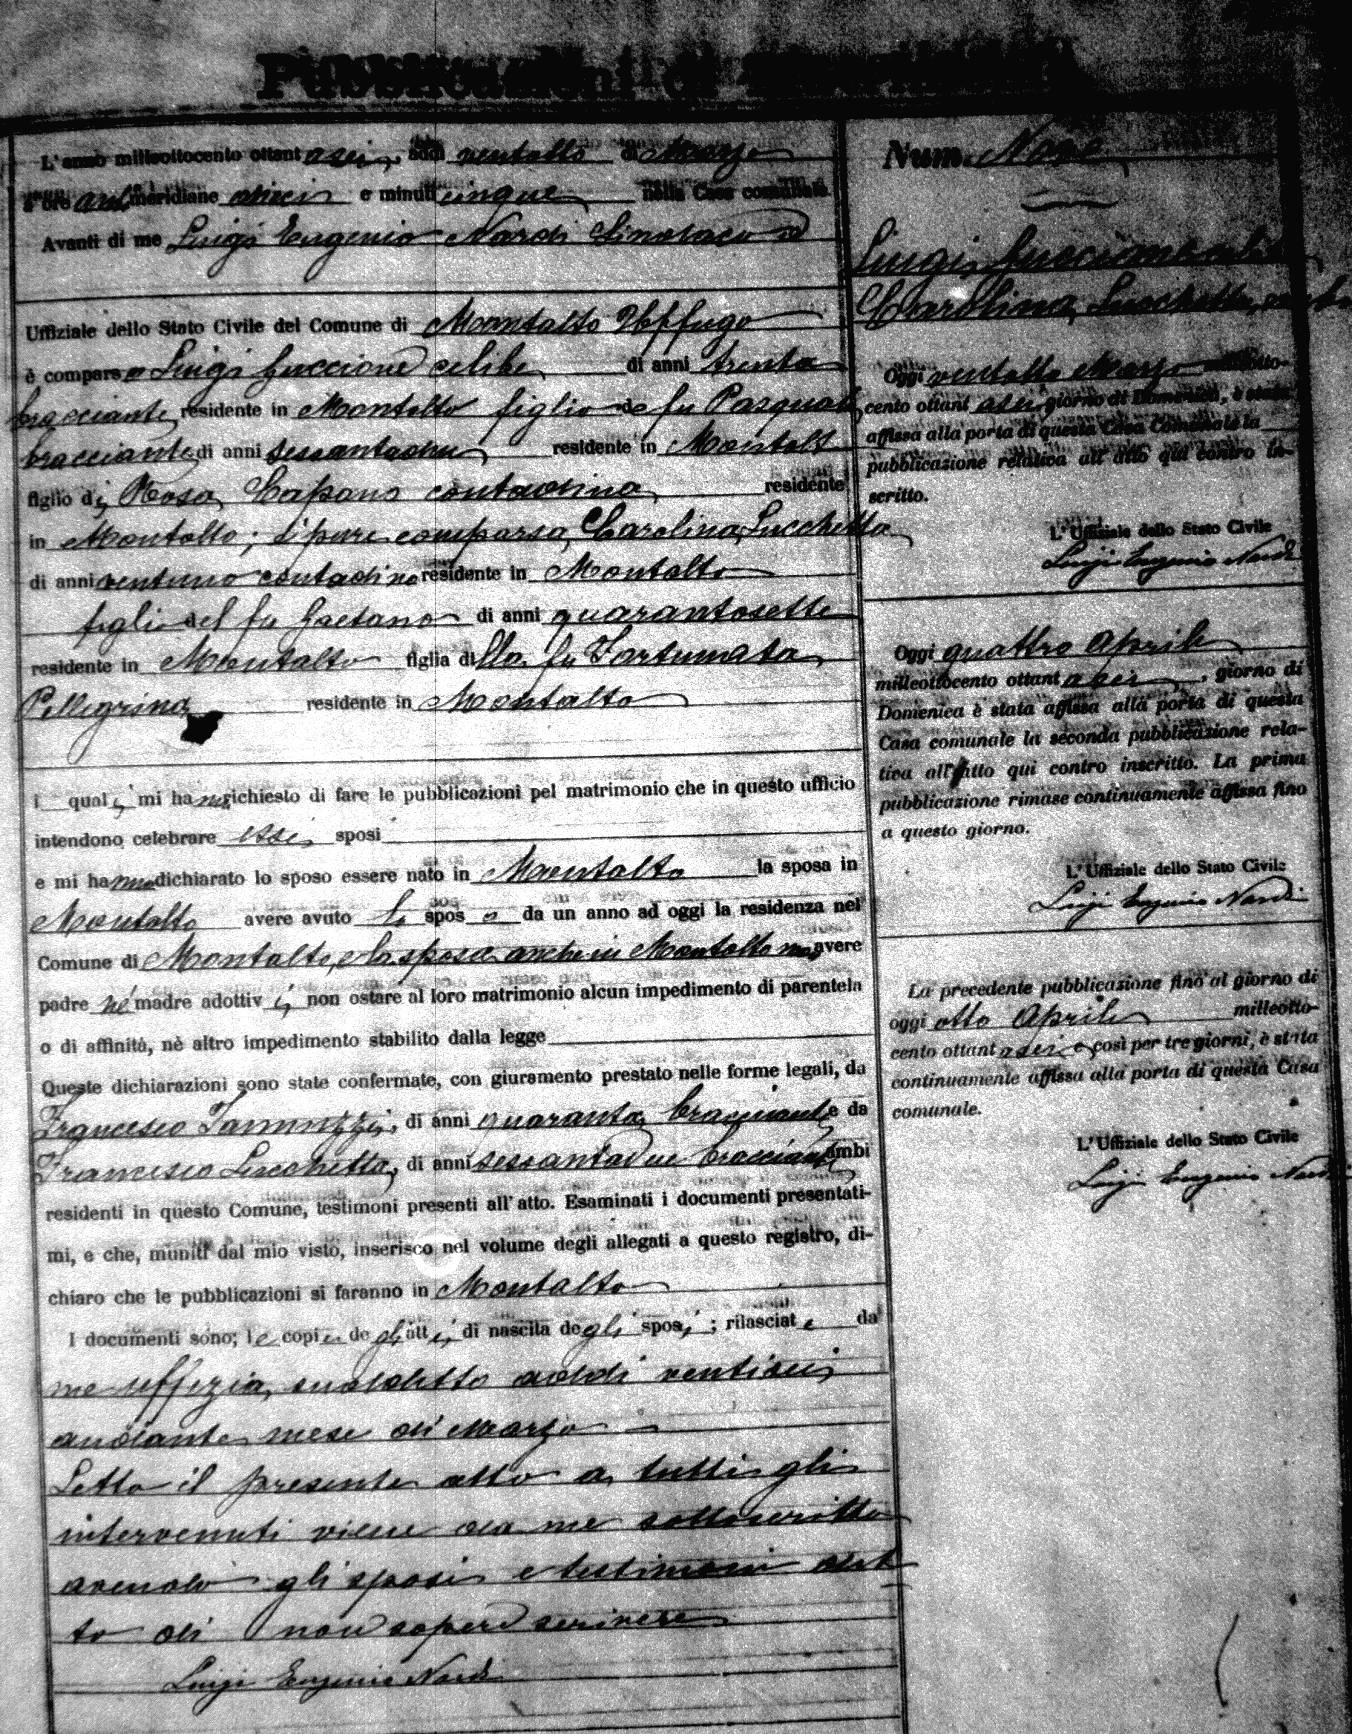 Pubblicazioni di
L'anno milleottocento ottant asei, addì ventotto di Marzo
a ore antimeridiane dieci e minuti cinque nella Casa comunale.
Avanti di me Luigi Eugenio Nardi Sindaco ed
Uffiziale dello Stato Civile del Comune di Montalto Uffugo
è comparso Luigi Guccione celibe di anni trenta
bracciante residente in Montalto figlio del fu Pasquale
bracciante di anni residente in Montalto
figlio di Rosa Capano contadina residente
in Montalto; è pure comparsa Carolina Lucchetta
di anni ventuno contadina residente in Montalto
figlia del fu Gaetano di anni quarantasette
residente in Montalto figlia di lla fu Fortunata
Pellegrino residente in Montalto
i qual i mi hanno richiesto di fare le pubblicazioni pel matrimonio che in questo ufficio
intendono celebrare essi sposi
e mi hanno dichiarato lo sposo essere nato in Montalto la sposa in
Montalto avere avuto lo spos o da un anno ad oggi la residenza nel
Comune di Montalto, e la sposa anche in Montalto non avere
padre né madre adottiv i, non ostare al loro matrimonio alcun impedimento di parentela
o di affinità, nè altro impedimento stabilito dalla legge
Queste dichiarazioni sono state confermate, con giuramento prestato nelle forme legali, da
Francesco Iannuzzi, di anni quaranta, bracciante e da
Francesco Lucchetta, di anni sessantadue bracciante ambi
residenti in questo Comune, testimoni presenti all'atto. Esaminati i documenti presentati-
mi, e che, muniti dal mio visto, inserisco nel volume degli allegati a questo registro, di-
chiaro che le pubblicazioni si faranno in Montalto
I documenti sono; le copie de gli atti di nascita de gli sposi; rilasciat e da
me uffizia, suddetto addì ventisei
andante mese di Marzo
Letto il presente atto a tutti gli
intervenuti viene da me sottoscritto
avendo gli sposi e testimoni det
to di non sapere scrivere
Luigi Eugenio Nardi
Num. Nove
Luigi Guccione celibe
Carolina Lucchetta,
Oggi ventotto Marzo milleotto-
cento ottant asei, giorno di Domenica, è stata
affissa alla porta di questa Casa Comunale la
pubblicazione relativa all'atto qui contro in-
scritto.
L'Uffiziale dello Stato Civile
Luigi Eugenio Nardi
Oggi quattro Aprile
milleottocento ottant asei, giorno di
Domenica è stata affissa alla porta di questa
Casa comunale la seconda pubblicazione rela-
tiva all'atto qui contro inscritto. La prima
pubblicazione rimase continuamente affissa fino
a questo giorno.
L'Uffiziale dello Stato Civile
Luigi Eugenio Nardi
La precedente pubblicazione fino al giorno di
oggi otto Aprile milleotto-
cento ottant asei e così per tre giorni, è stata
continuamente affissa alla porta di questa Casa
comunale.
L'Uffiziale dello Stato Civile
Luigi Eugenio Nardi